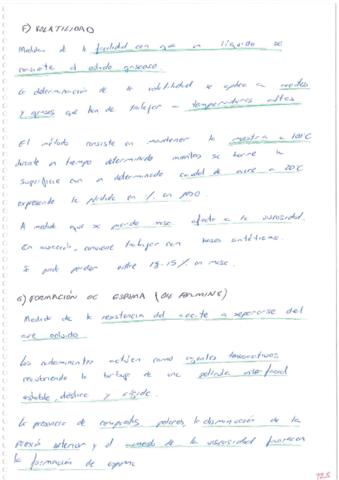 F) VOLATILIDAD
Medida de la facilidad con que un líquido se
convierte al estado gaseoso.
La determinación de la volatilidad se aplica a aceites
y grasas que han de trabajar a temperaturas altas
El método consiste en mantener la muestra a
durante un tiempo determinado mientras se barre la
superficie con un determinado caudal de aire a 20ºC
expresando la pérdida en % en peso.
A medida que se pierde masa afecta a la viscosidad.
En conveniente trabajar con bases sintéticas.
Se puede perder entre 18-15% en masa.
G) FORMACIÓN DE ESPUMA (OIL FOAMING)
Medida de la resistencia del aceite a separarse del
aire ocluido
Los contaminantes actúan como agentes tensoactivos,
recubriendo la burbuja de una película interfacial
estable, elástica y rígida.
La presencia de compuestos polares, la disminución de la
tensión exterior y el aumento de la viscosidad favorecen
la formación de espuma